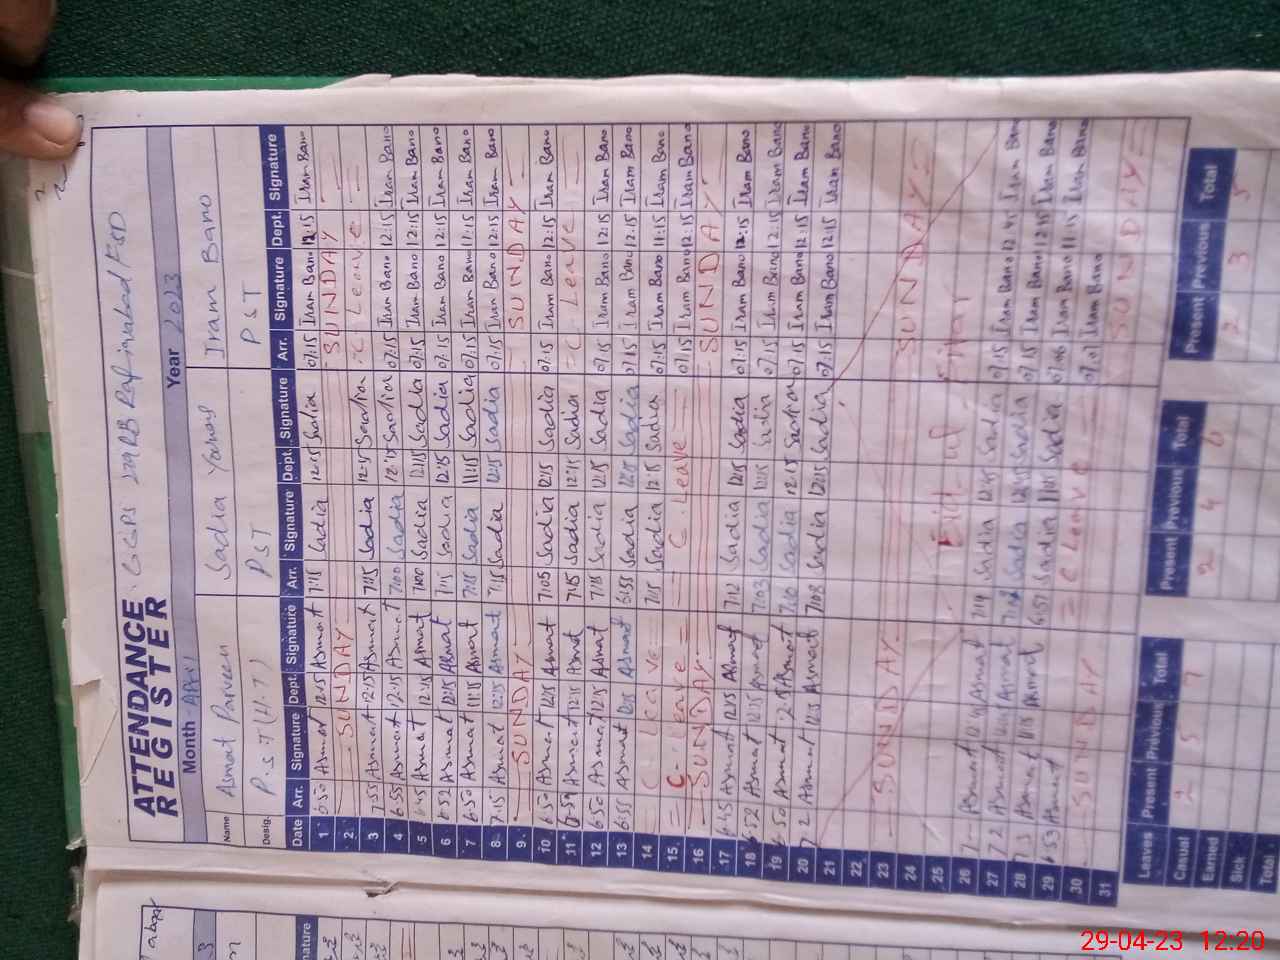 ATTENDANCE
REGISTER
Month April Year 2023
Name Asmat Parveen Sadia Iram Bano
Desig. P.S.T (H.T) PST PST
Date Arr. Signature Dept. Signature Arr. Signature Dept. Signature Arr. Signature Dept. Signature
1 6:50 Asmat 12:15 Asmat 7:15 Sadia 12:15 Sadia 07:15 Iram Bano 12:15 Iram Bano
2 SUNDAY SUNDAY
3 7:55 Asmat 12:15 Asmat 7:15 Sadia 12:15 Sadia C Leave
4 6:55 Asmat 12:15 Asmat 7:00 Sadia 12:15 Sadia 07:15 Iram Bano 12:15 Iram Bano
5 6:45 Asmat 12:15 Asmat 7:00 Sadia 12:15 Sadia 07:15 Iram Bano 12:15 Iram Bano
6 6:52 Asmat 12:15 Asmat 7:15 Sadia 12:15 Sadia 07:15 Iram Bano 12:15 Iram Bano
7 6:50 Asmat 11:15 Asmat 7:15 Sadia 11:15 Sadia 07:15 Iram Bano 11:15 Iram Bano
8 7:15 Asmat 12:15 Asmat 7:15 Sadia 12:15 Sadia 07:15 Iram Bano 12:15 Iram Bano
9 SUNDAY SUNDAY
10 6:50 Asmat 12:15 Asmat 7:05 Sadia 12:15 Sadia 07:15 Iram Bano 12:15 Iram Bano
11 6:59 Asmat 12:15 Asmat 7:15 Sadia 12:15 Sadia C Leave
12 6:50 Asmat 12:15 Asmat 7:15 Sadia 12:15 Sadia 07:15 Iram Bano 12:15 Iram Bano
13 6:55 Asmat 12:15 Asmat 6:55 Sadia 12:15 Sadia 07:15 Iram Bano 12:15 Iram Bano
14 C Leave 7:15 Sadia 12:15 Sadia 07:15 Iram Bano 11:15 Iram Bano
15 C. Leave C Leave 07:15 Iram Bano 12:15 Iram Bano
16 SUNDAY SUNDAY
17 6:45 Asmat 12:15 Asmat 7:12 Sadia 12:15 Sadia 07:15 Iram Bano 12:15 Iram Bano
18 6:52 Asmat 12:15 Asmat 7:03 Sadia 12:15 Sadia 07:15 Iram Bano 12:15 Iram Bano
19 6:50 Asmat Asmat Sadia 12:15 Sadia 07:15 Iram Bano 12:15 Iram Bano
20 7:2 Asmat 12:15 Asmat 7:08 Sadia 12:15 Sadia 07:15 Iram Bano 12:15 Iram Bano
21
22
23 SUNDAY SUNDAY
24
25 Eid ul Fitar
26 Asmat Asmat 7:14 Sadia 12:45 Sadia 07:15 Iram Bano 12:45 Iram Bano
27 7:2 Asmat Asmat Sadia 12:45 Sadia 07:15 Iram Bano 12:45 Iram Bano
28 7:3 Asmat 11:15 Asmat 6:57 Sadia 11:05 Sadia 07:06 Iram Bano 11:15 Iram Bano
29 6:53 Asmat C Leave 07:01 Iram Bano
30 SUNDAY SUNDAY
31
Leaves Present Previous Total Present Previous Total Present Previous Total
Casual 2 5 7 2 4 6 2 3 5
Earned
Sick
Total
29-04-23 12:20